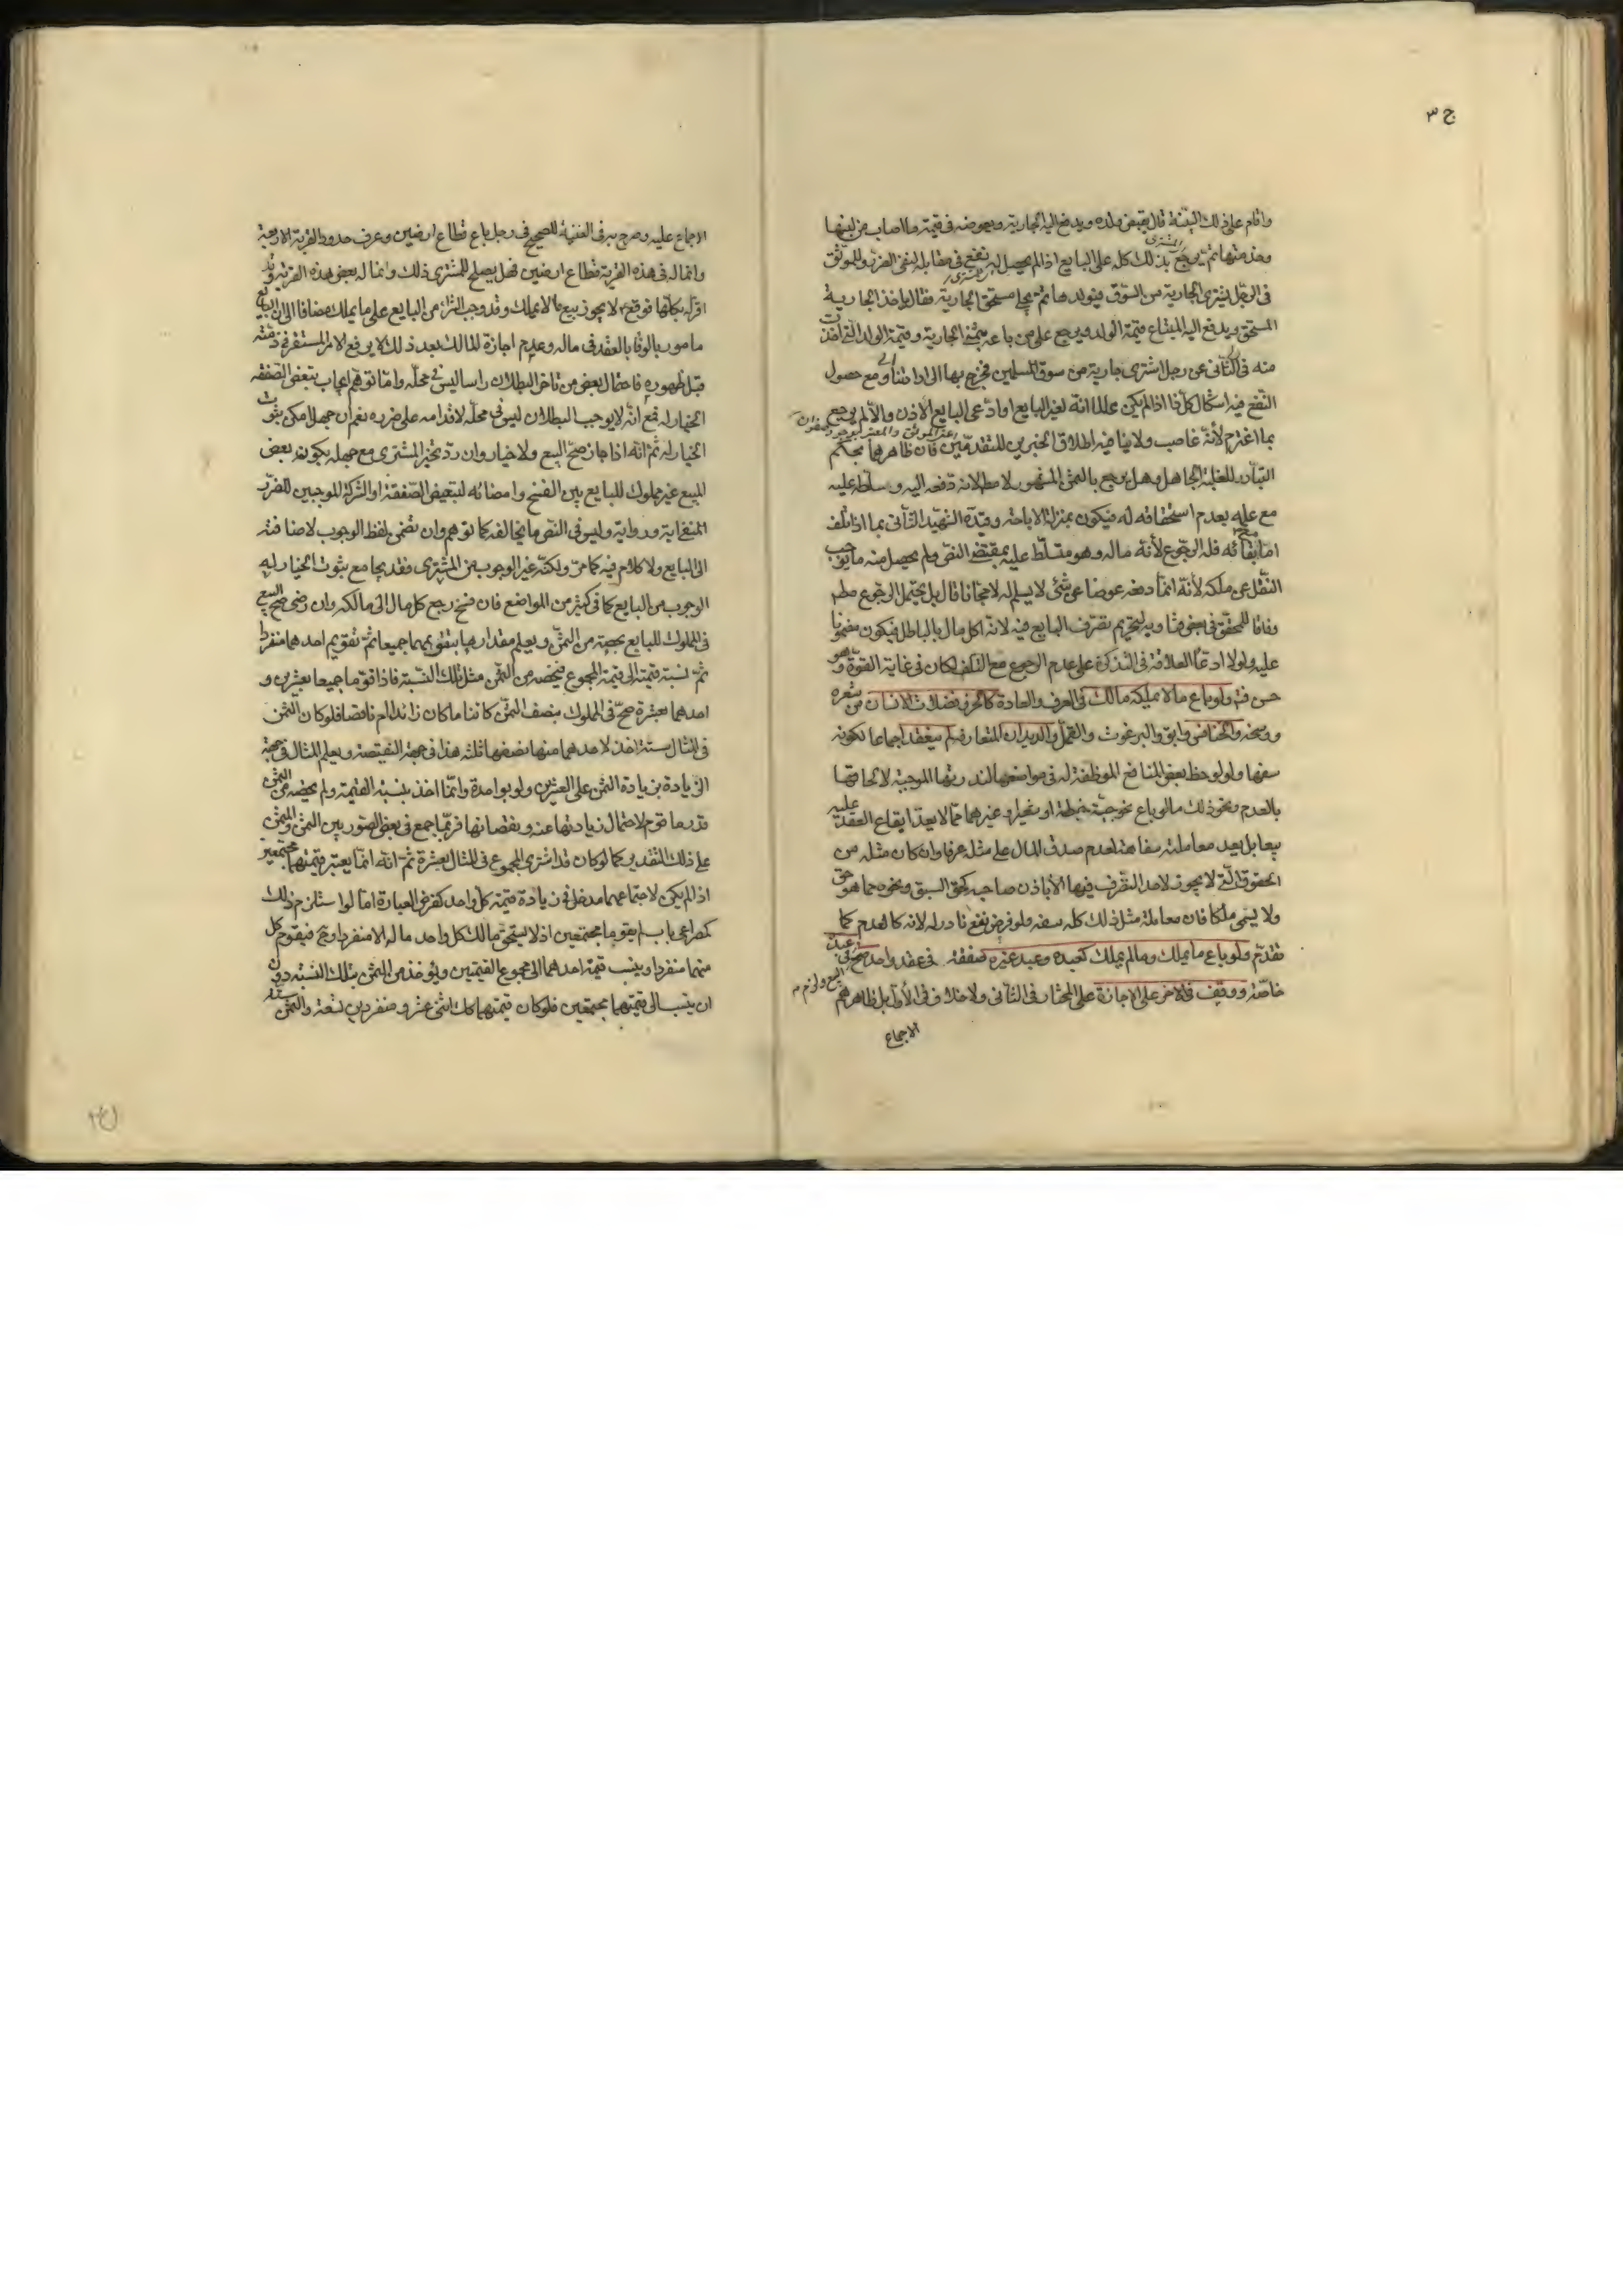 ج ٣
واقام على ذلك البينة قال يقبض ولده ويدفع اليه الجارية ويعوضه فى قيمة ما اصاب من لبنها
وخدمتها ثم يرجع المشترى بذلك كله على البايع اذا لم يحصل له نفع فى مقابله لنفى الضرر وللموثق
فى الرجل يشترى الجارية من السوق فيولدها ثم يجئ مستحق الجارية فقال ياخذ الجارية
المستحق ويدفع اليه المبتاع قيمة الولد ويرجع على من باعه بثمن الجارية وقيمة الولد التى اخذت
منه فى الثانى عن رجل اشترى جارية من سوق المسلمين فخرج بها الى ارضه
النفع فيه اشكال كل ذا اذا لم يكن عالما انه لغير البايع او ادعى البايع الاذن والا لم يرجع
بما اغترم لأنه غاصب ولا ينافيه اطلاق الخبرين المتقدمين فان ظاهرهما بحكم
التبادر الغلبة الجاهل وهل يرجع بالثمن المشهور لا مطلقا لانه دفعه اليه وسلطه عليه
مع علمه بعدم استحقاقه له فيكون بمنزلة الاباحة وقيده الشهيد الثانى بما اذا تلف
اما مع بقائه فله الرجوع لأنه ماله وهو متسلط عليه بمقتضى النص ولم يحصل منه ما يوجب
النقل عن ملكه لأنه انما دفعه عوضا عن شئ لا يسلم له لا مجانا قال بل يحتمل الرجوع مطلقا
وفاقا للمحقق فى بعض فتاويه لتحريم تصرف البايع فيه لانه اكل مال بالباطل فيكون مضمونا
عليه ولولا ادعاء العلامة فى التذكرة على عدم الرجوع مع التلف لكان فى غاية القوة وهو
حسن فتم ولو باع ما لا يملكه مالك فى العرف والعادة كالحر وفضلات الانسان من شعره
ووسخه والخنافس وابق والبرغوث والقمل والديدان المتعارفة لم ينعقد اجماعا لكونه
سفها ولو لوحظ بعض المنافع الموظفة له فى مواضعها لندرتها الموجبة لالحاقها
بالعدم ونحو ذلك ما لو باع نحو حبة حنطة او شعير او غيرهما مما لا يعد ايقاع العقد عليه
بمقابل بعيد معاملة سفاهة لعدم صدق المال على مثله عرفا وان كان مثله من
الحقوق التى لا يجوز لاحد التصرف فيها الا باذن صاحبه كحق السبق ونحوه مما هو حق
ولا يسمى ملكا فان معاملة مثل ذلك كله سفه ولو فرض نفع نادر له لانه كالعدم كما
تقدم ولو باع ما يملك وما لم يملك كعبده وعبد غيره صفقة فى عقد واحد صح فى عبده
خاصة ووقف فى الاخر على الاجازة على المختار فى الثانى ولا خلاف فى الأول بل ظاهرهم
الاجماع
الاجماع عليه وصرح به فى الغنية للصحيح فى رجل باع قطاع ارضين وعرف حدود القرية الاربعة
وانما له فى هذه القرية قطاع ارضين فهل يصلح للمشترى ذلك وانما له بعض هذه القرية وقد
اقر له بكلها فوقع ع لا يجوز بيع ما لا يملك وقد وجب الشراء من البايع على ما يملك مضافا الى ان البايع
مامور بالوفا بالعقد فى ماله وعدم اجازة المالك بعد ذلك لا يرفع الامر المستقر فى ذمته
قبل ظهوره فاحتمال بعض من تاخر البطلان راسا ليس فى محله واما توهم ايجاب تبعض الصفقة
الخيار له فمع انه لا يوجب البطلان ليس فى محله لاقدامه على ضرره نعم ان جهل امكن ثبوت
الخيار له ثم انه اذا جاز صح البيع ولا خيار وان رد تخير المشترى مع جهله بكون بعض
المبيع غير مملوك للبايع بين الفسخ وامضائه لتبعيض الصفقة او الشركة الموجبين للضرر
المنفى آية ورواية وليس فى النص ما يخالفه كما توهم وان تضمن لفظ الوجوب لاضافته
الى البايع ولا كلام فيه كما مر ولكنه غير الوجوب من المشترى فقد يجامع ثبوت الخيار له
الوجوب من البايع كما فى كثير من المواضع فان فسخ رجع كل مال الى مالكه وان رضى صح البيع
فى المملوك للبايع بحصته من الثمن ويعلم مقدارها بتقويمهما جميعا ثم تقويم احدهما منفردا
ثم نسبة قيمته الى قيمة المجموع فيخصه من الثمن مثل تلك النسبة فاذا قوما جميعا بعشرين و
احدهما بعشرة صح فى المملوك بنصف الثمن كائنا ما كان زائدا ام ناقصا فلو كان الثمن
فى المثال ستة اخذ لاحدهما منها نصفها ثلثة هذا فى جهة النقيصة ويعلم المثال فى جهة
الزيادة بزيادة الثمن على العشرين ولو بواحدة وانما اخذ بنسبة القيمة ولم يخصه من الثمن
قدر ما قوم لاحتمال زيادتها عنه ونقصانها فربما جمع فى بعض الصور بين الثمن والمثمن
على ذلك التقدير كما لو كان قد اشترى المجموع فى المثال بعشرة ثم انه انما يعتبر قيمتهما مجتمعين
اذا لم يكن لاجتماعهما مدخل فى زيادة قيمة كل واحد كفرض العبارة اما لو استلزم ذلك
كمصراعى باب لم يقوما مجتمعين اذ لا يستحق مالك كل واحد ماله الا منفردا وح فيقوم كل
منهما منفردا وينسب قيمة احدهما الى مجموع القيمتين ويؤخذ من الثمن بتلك النسبة دون
ان ينسب الى قيمتهما مجتمعين فلو كان قيمتهما كك اثنى عشر ومنفردين تسعة والثمن ستة